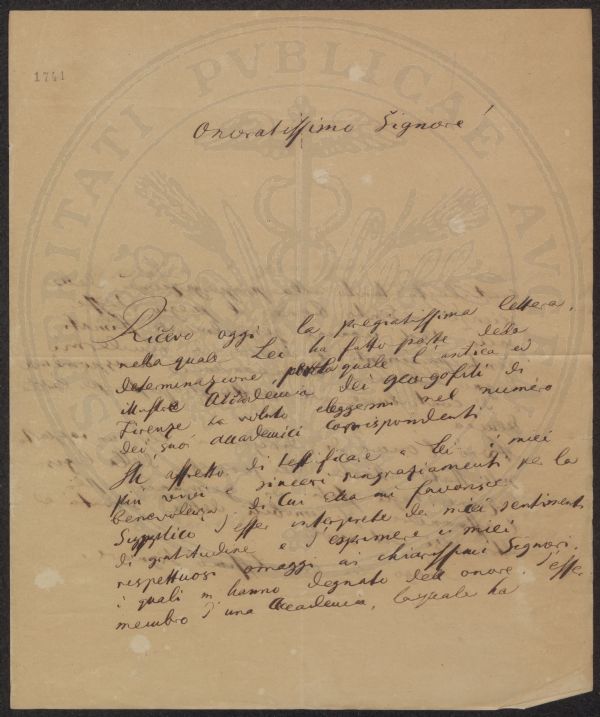 1741
PROSPERITATI PVBLICAE AVGENDAE
Onoratissimo Signore!
Ricevo oggi la pregiatissima lettera,
nella quale Lei ha fatto parte della
determinazione, per la quale l'antica ed
illustre Accademia dei georgofili di
Firenze ha voluto eleggermi nel numero
dei suoi accademici corrispondenti
M' affretto di testificare a Lei i miei
più vivi e sinceri ringraziamenti per la
benevolenza, di cui Ella mi favorisce
Supplico d'esser interprete dei miei sentimenti
di gratitudine e d'esprimere i miei
rispettuosi omaggi ai chiarissimi Signori,
i quali m hanno degnato dell onore d'esser
membro d'una Accademia, la quale ha